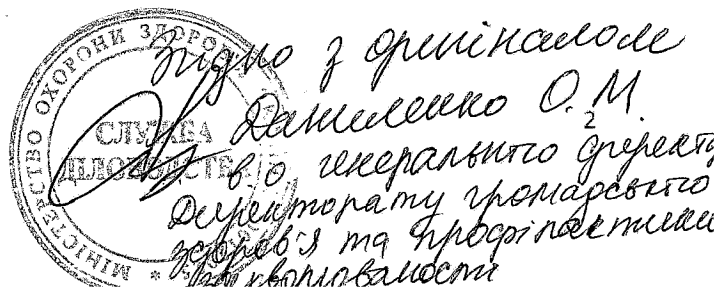 МІНІСТЕРСТВО ОХОРОНИ ЗДОРОВ'Я
СЛУЖБА
ДІЛОВОДСТВА
Згідно з оригіналом
Даниленко О. М.
2
в о генерального директо
Директорату громадського
здоров'я та профілактики
захворюваності